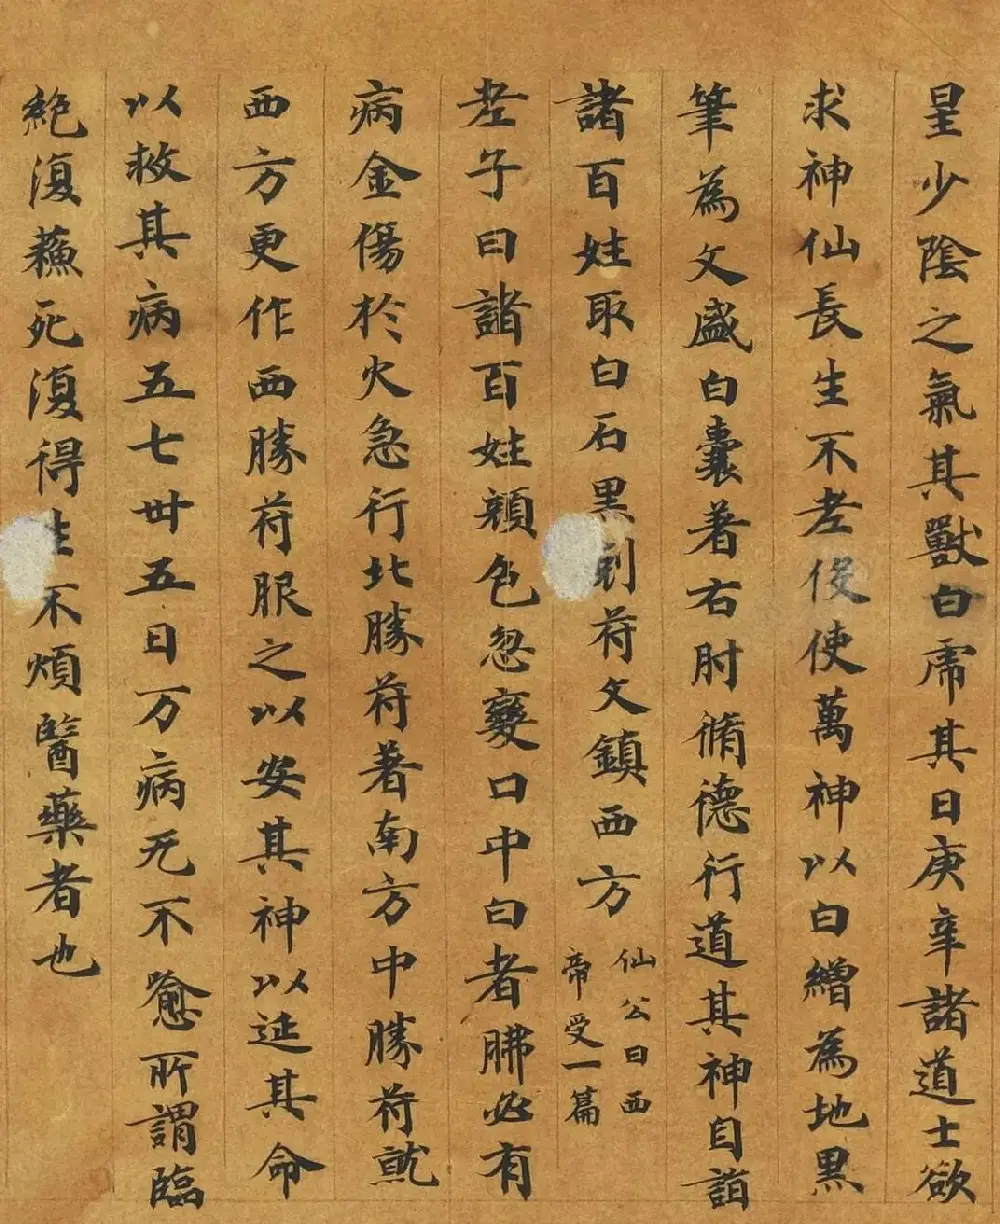 星少陰之氣其獸白虎其日庚辛諸道士欲
求神仙長生不老役使萬神以白繒為地黑
筆為文盛白囊著右肘脩德行道其神自詣
諸百姓取白石黑刻符文鎮西方
仙公曰西
帝受一篇
老子曰諸百姓顏色忽變口中白者肺必有
病金傷於火急行北勝符著南方中勝符就
西方更作西勝符服之以安其神以延其命
以救其病五七卅五日万病无不愈所謂臨
絕復蘇死復得生不煩醫藥者也